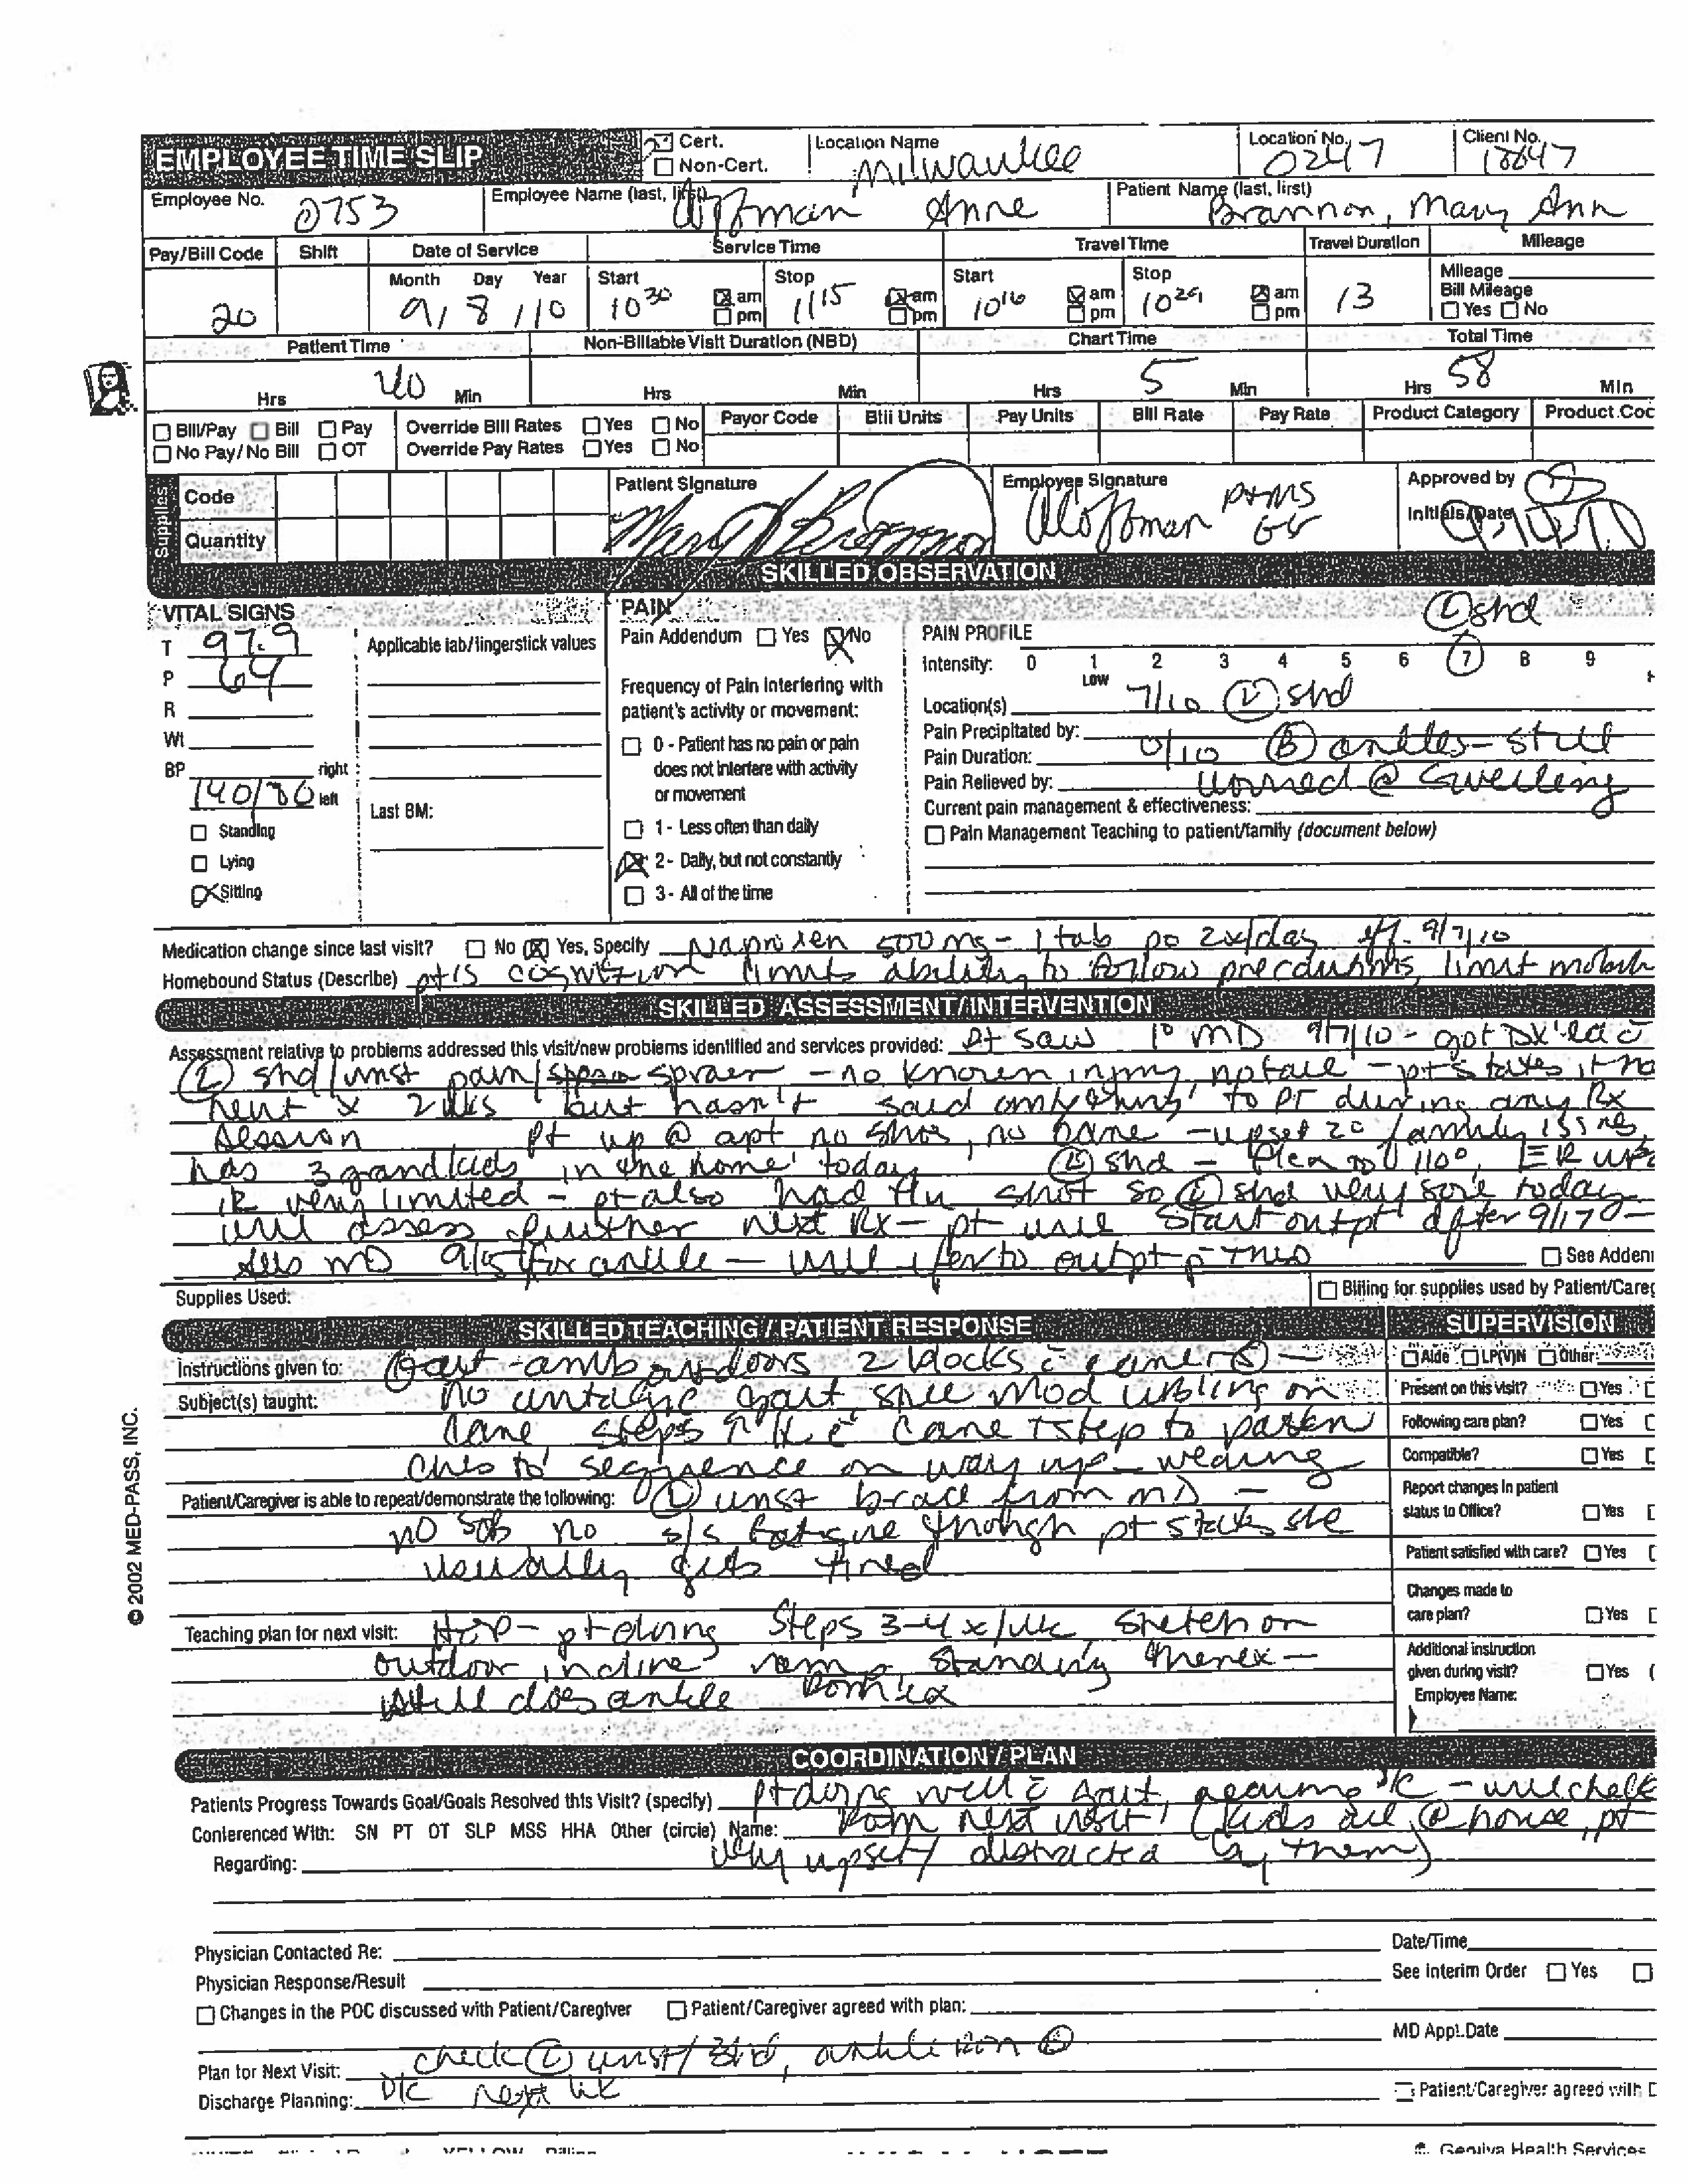 EMPLOYEE TIME SLIP
Cert.
Non-Cert.
Location Name
Milwaukee
Location No.
0247
Client No.
Employee No.
0753
Employee Name (last, first)
Anne
Patient Name (last, first)
Brannon, Mary Ann
Pay/Bill Code Shift Date of Service Service Time Travel Time Travel Duration Mileage
Month Day Year Start Stop Start Stop
20 9/8/10 10 30 am pm 11 15 am pm 10 16 am pm 10 29 am pm 13
Mileage
Bill Mileage
Yes No
Patient Time Non-Billable Visit Duration (NBD) Chart Time Total Time
Hrs 40 Min Hrs Min Hrs 5 Min Hrs 58 Min
Bill/Pay Bill Pay Override Bill Rates Yes No Payor Code Bill Units Pay Units Bill Rate Pay Rate Product Category Product Coc
No Pay/No Bill OT Override Pay Rates Yes No
Supplies
Code
Quantity
Patient Signature
Employee Signature
Approved by
Initials/Date
SKILLED OBSERVATION
VITAL SIGNS
T 97.9
P 64
R
Wt
BP right
left
Standing
Lying
Sitting
Applicable lab/fingerstick values
Last BM:
PAIN
Pain Addendum Yes No
Frequency of Pain interfering with
patient's activity or movement:
0 - Patient has no pain or pain
does not interfere with activity
or movement
1 - Less often than daily
2 - Daily, but not constantly
3 - All of the time
(L) shd
PAIN PROFILE
Intensity: 0 1 2 3 4 5 6 7 8 9
LOW
Location(s) 7/10 (L) shd
Pain Precipitated by:
Pain Duration: 0/10 (B) ankles - still
Pain Relieved by: swelling
Current pain management & effectiveness:
Pain Management Teaching to patient/family (document below)
Medication change since last visit? No Yes, Specify Naproxen 500 mg - 1 tab po 2x/day eff. 9/7/10
Homebound Status (Describe) pt's cognition limits ability to follow precautions, limit
SKILLED ASSESSMENT/INTERVENTION
Assessment relative to problems addressed this visit/new problems identified and services provided: Pt saw 1° MD 9/7/10 - got
(L) shd/ pain/ - no known injury, no fall - pt states it
hurt x 2 wks but hasn't said anything to PT during any Rx
session pt up @ apt no shoes, no cane - upset 2° family issues,
has 3 grandkids in the home today (L) shd - 110°, ER
IR very limited - pt also had flu shot so (L) shd very sore today
will assess further next Rx - pt will start outpt after 9/17
sees MD 9/15 for ankle - will to outpt
See Adden
Supplies Used:
Billing for supplies used by Patient/Careg
SKILLED TEACHING / PATIENT RESPONSE
SUPERVISION
Instructions given to: Gait - amb outdoors 2 blocks c cane
Subject(s) taught: no antalgic gait, mod on
cane, steps c cane step to pattern
to sequence on way up - wearing
Patient/Caregiver is able to repeat/demonstrate the following: (L) brace from MD -
no SOB no s/s fatigue though pt states she
usually gets tired
Teaching plan for next visit: HEP - pt doing steps 3-4 x/wk stretch on
outdoor incline ramp, standing therex -
still does ankle
Aide LP(V)N Other:
Present on this visit? Yes
Following care plan? Yes
Compatible? Yes
Report changes in patient
status to Office? Yes
Patient satisfied with care? Yes
Changes made to
care plan? Yes
Additional instruction
given during visit? Yes
Employee Name:
COORDINATION / PLAN
Patients Progress Towards Goal/Goals Resolved this Visit? (specify) Pt doing well c gait, nearing d/c - will check
Conferenced With: SN PT OT SLP MSS HHA Other (circle) Name: next visit (kids all @ house, pt
Regarding: very upset/ distracted by them)
Physician Contacted Re:
Date/Time
Physician Response/Result
See Interim Order Yes
Changes in the POC discussed with Patient/Caregiver Patient/Caregiver agreed with plan:
MD Appt. Date
Plan for Next Visit: check (L) wrist/shd, ankle
Discharge Planning: D/C next wk
Patient/Caregiver agreed with
© 2002 MED-PASS, INC.
Gentiva Health Services